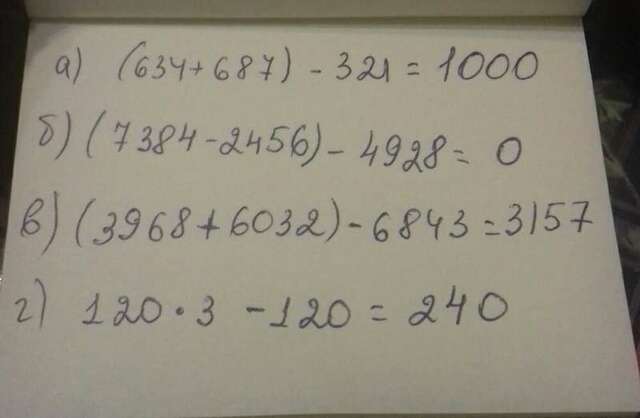 а) (634+687) - 321 = 1000
б) (7384-2456) - 4928 = 0
в) (3968+6032) - 6843 = 3157
г) 120 · 3 - 120 = 240